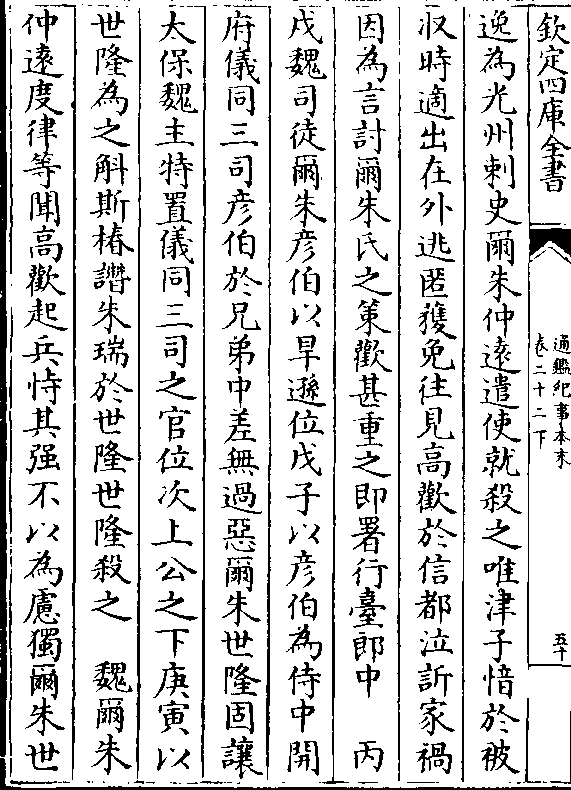 欽定四庫全書
通鑑紀事本末
卷二十二下
五十
逸為光州刺史爾朱仲遠遣使就殺之唯津子愔於被
收時適出在外逃匿獲免往見高歡於信都泣訴家禍
因為言討爾朱氏之策歡甚重之即署行臺郎中　丙
戌魏司徒爾朱彦伯以旱遜位戊子以彦伯為侍中開
府儀同三司彦伯於兄弟中差無過惡爾朱世隆固讓
太保魏主特置儀同三司之官位次上公之下庚寅以
世隆為之斛斯椿譖朱瑞於世隆世隆殺之　魏爾朱
仲遠度律等聞高歡起兵恃其强不以為慮獨爾朱世